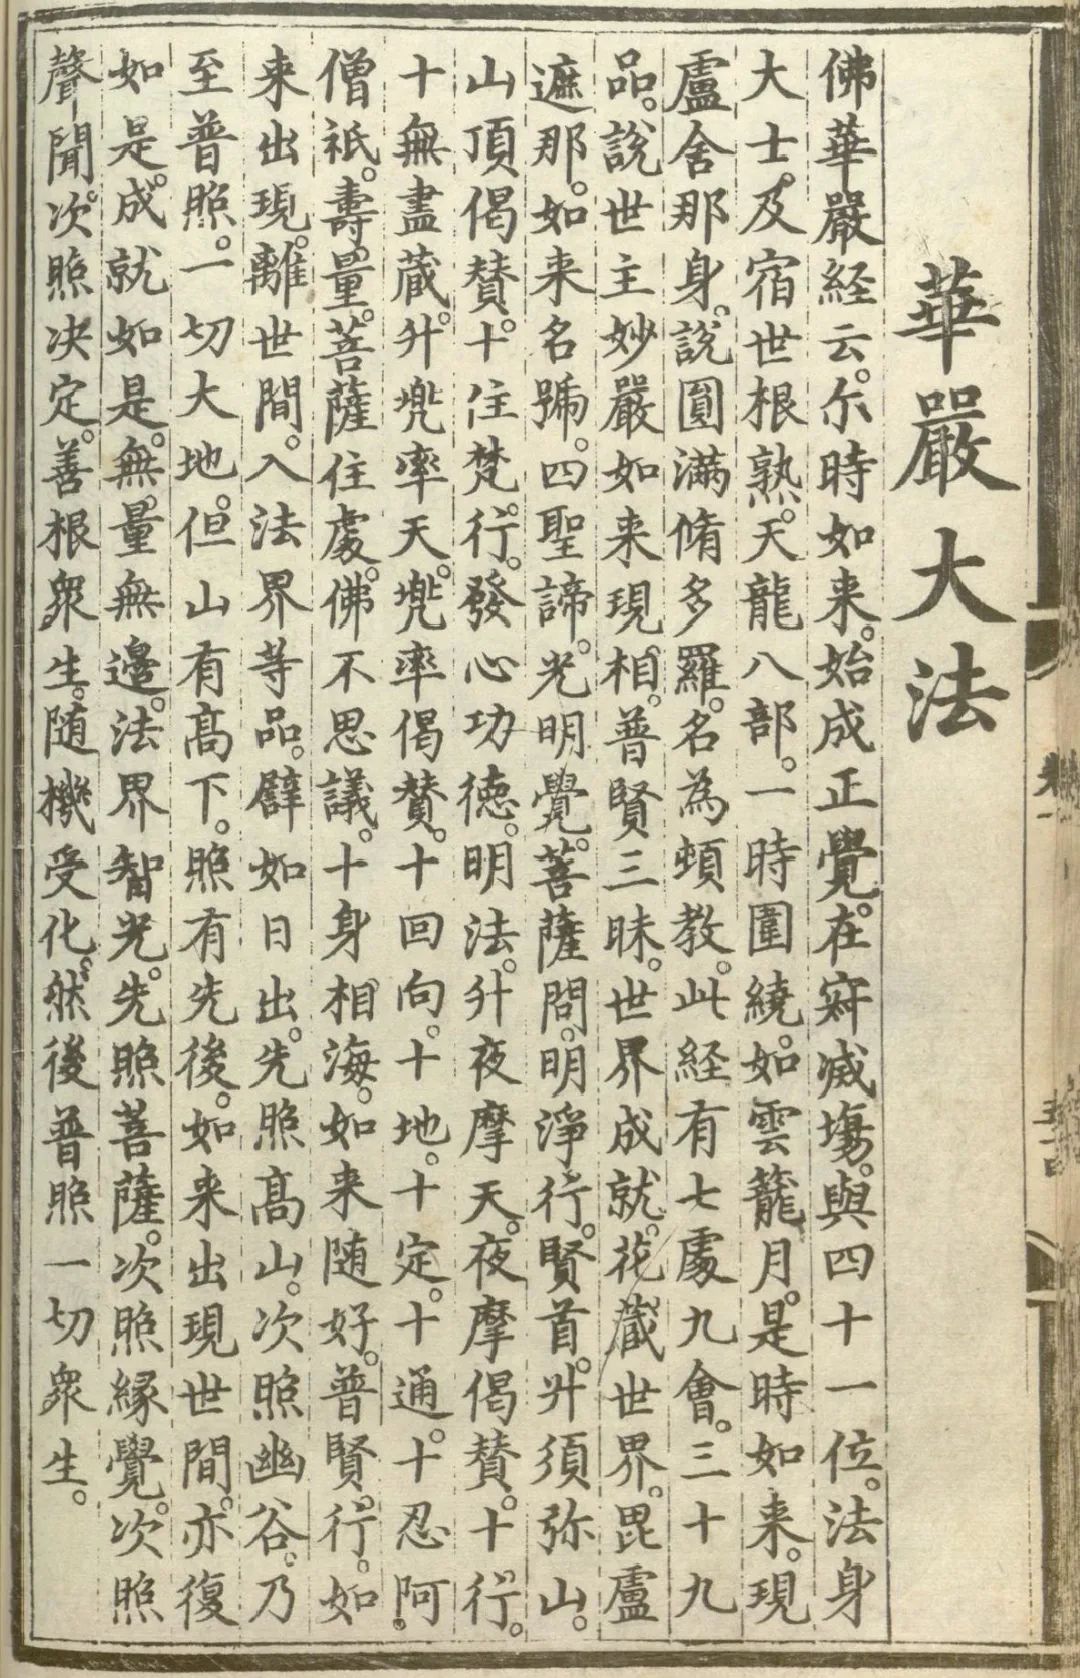 華嚴大法
佛華嚴経云。尓時如来。始成正覺。在寂滅場。與四十一位。法身
大士。及宿世根熟。天龍八部。一時圍繞。如雲籠月。是時如来。現
盧舍那身。説圓滿脩多羅。名為頓教。此経有七處九會。三十九
品。説世主妙嚴如来現相。普賢三昧。世界成就。花藏世界。毘盧
遮那。如来名號。四聖諦。光明覺。菩薩問。明淨行。賢首。升須弥山。
山頂偈賛。十住梵行。發心功徳。明法。升夜摩天。夜摩偈賛。十行。
十無盡藏。升兠率天。兠率偈賛。十回向。十地。十定。十通。十忍阿
僧祇。壽量。菩薩住處。佛不思議。十身相海。如来随好。普賢行。如
来出現。離世間。入法界等品。譬如日出。先照髙山。次照幽谷。乃
至普照。一切大地。但山有髙下。照有先後。如来出現世間。亦復
如是。成就如是。無量無邊。法界智光。先照菩薩。次照縁覺。次照
聲聞。次照决定。善根衆生。随機受化。然後普照一切衆生。